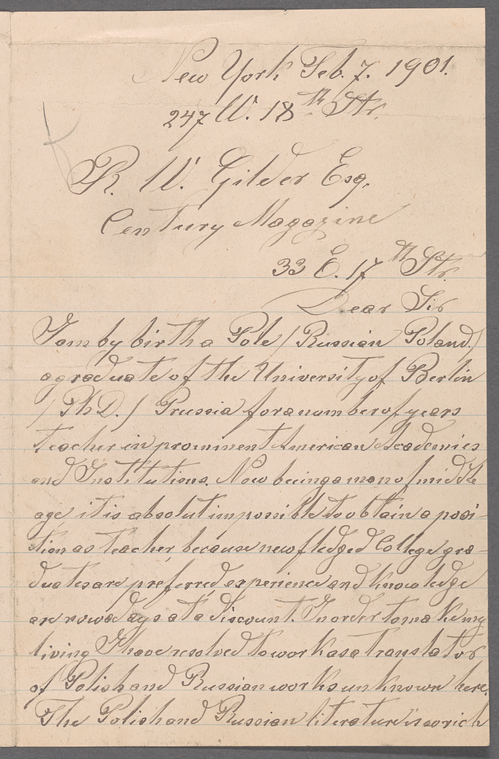 New York Feb. 7. 1901.
247 W. 18th Str.
R. W. Gilder Esq.
Century Magazine
33 E. 17th Str.
Dear Sir
I am by birth a Pole / Russian Poland /
a graduate of the University of Berlin
/ Ph.D. / Prussia for a number of years
teacher in prominent American Academies
and Institutions. Now being a man of middle
age it is absolut impossible to obtain a posi-
tion as teacher, because new fledged College gra-
duates are preferred experience and knowledge
are nowadays at a discount. In order to make my
living I have resolved to work as a translator
of Polish and Russian works unknown here.
The Polish and Russian literature is so rich